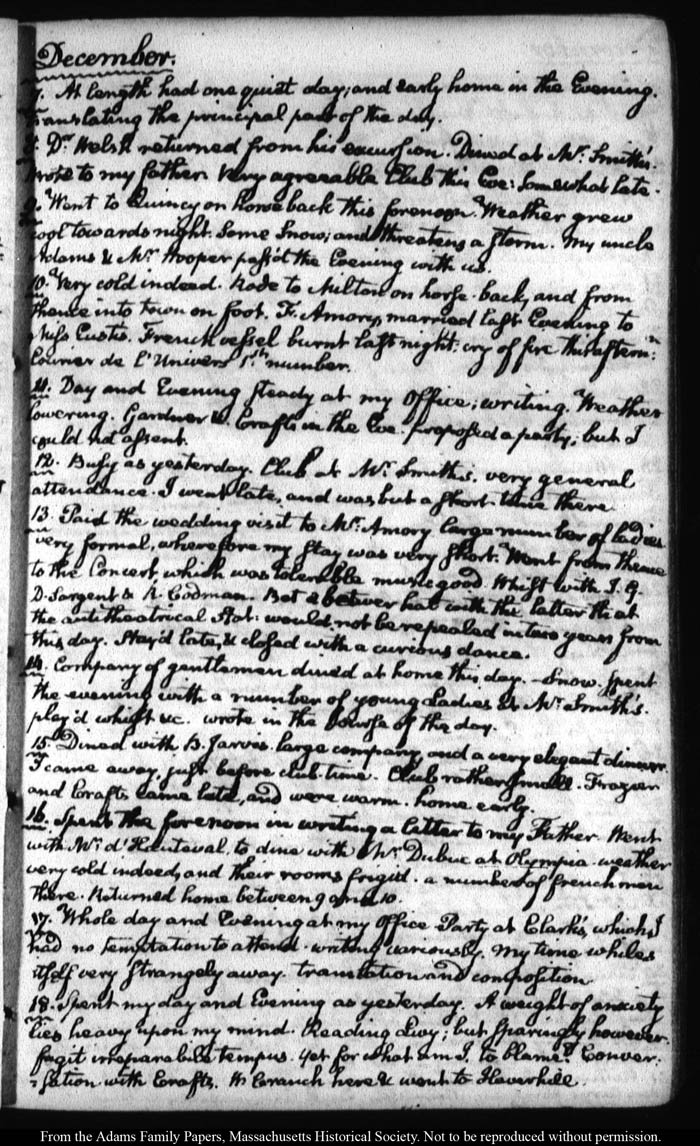 December.
7. At length had one quiet day; and early home in the Evening.
translating the principal part of the day.
8. Dr. Welsh returned from his excursion. Dined at Mr. Smith's.
wrote to my father. Very agreeable Club this Eve: Somewhat late.
9. Went to Quincy on horse back this forenoon. Weather grew
cool towards night. Some Snow; and threatens a storm. My uncle
Adams & Mr. Hooper pass'd the Evening with us.
10. Very cold indeed. Rode to Milton on horse-back, and from
thence into town on foot. F. Amory, married last Evening to
Miss Custis. French vessel burnt last night: cry of fire this aftern:n
Courier de l'Univers 1.st number.
11. Day and Evening steady at my Office; writing. Weather
lowering. Gardner & Crafts in the Eve. proposed a party; but I
could not assent.
12. Busy as yesterday. Club at Mr. Smith's. very general
attendance. I went late, and was but a short time there.
13. Paid the wedding visit to Mrs. Amory large number of ladies
very formal, wherefore my stay was very short. Went from thence
to the Concert which was tolerable music good. Whist with
D. Sargent & R. Codman. Bet a beaver hat with the latter that
the antitheatrical Stat: would not be repealed in two years from
this day. Stay'd late, & closed with a curious dance.
14. Company of gentlemen dined at home this day. Snow. Spent
the evening with a number of young Ladies at Mr. Smith's.
play'd whist &c. wrote in the course of the day.
15. Dined with B. Jarvis large company and a very elegant dinner.
I came away, just before club time. Club rather small. Frazier
and Crafts came late, and were warm. home early.
16. Spent the forenoon in writing a letter to my Father. Went
with Mr. d'Hauteval to dine with Mr. Dubuc at Olympia. weather
very cold indeed, and their rooms frigid. a number of french men
there. Returned home between 9 and 10.
17. Whole day and Evening at my Office Party at Clark's, which I
had no temptation to attend. writing variously. My time whiles
itself very strangely away. translation and composition
18. Spent my day and Evening as yesterday. A weight of anxiety
lies heavy upon my mind. Reading Livy; but sparingly however.
fugit irreparabile tempus. yet for what am I to blame? Conver:
:sation with Crafts. W. Cranch here & went to Haverhill.
From the Adams Family Papers, Massachusetts Historical Society. Not to be reproduced without permission.